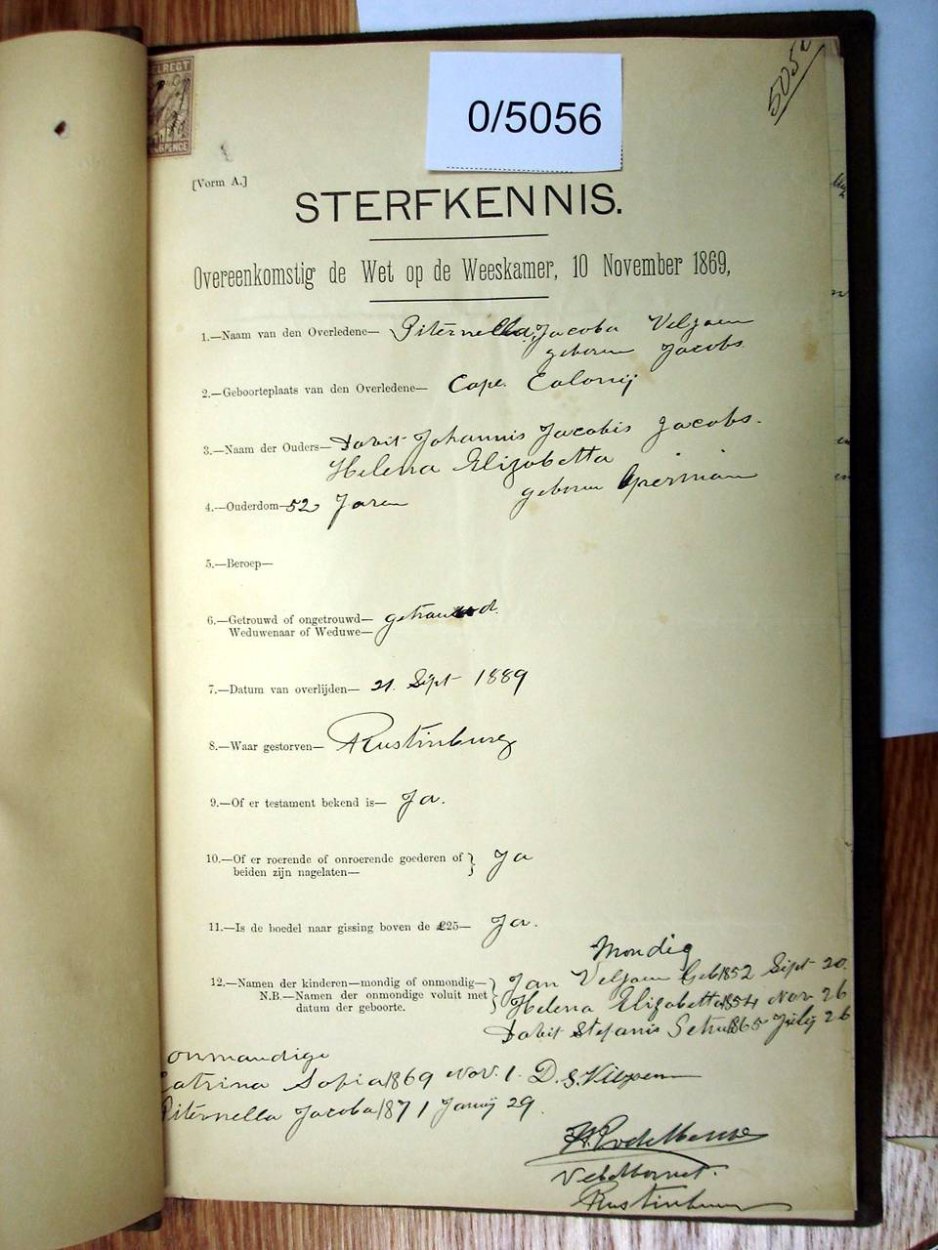 0/5056
[Vorm A.]
STERFKENNIS.
Overeenkomstig de Wet op de Weeskamer, 10 November 1869,
1.—Naam van den Overledene— Piternella Jacoba Veljoen
geboren Jacobs
2.—Geboorteplaats van den Overledene— Cape Colonij
3.—Naam der Ouders— Davit Johannis Jacobis Jacobs.
Helena Elizabetta
geboren
4.—Ouderdom— 52 Jaren
5.—Beroep—
6.—Getrouwd of ongetrouwd— getrouwd.
Weduwenaar of Weduwe—
7.—Datum van overlijden— 21. Sept 1889
8.—Waar gestorven— Rustinburg
9.—Of er testament bekend is— Ja.
10.—Of er roerende of onroerende goederen of } Ja
beiden zijn nagelaten—
11.—Is de boedel naar gissing boven de £25— Ja.
Mondig
12.—Namen der kinderen—mondig of onmondig— } Jan Veljoen Geb 1852 Sept 20.
N.B.—Namen der onmondige voluit met } Helena Elizabetta 1854 Nov 26
datum der geboorte. Davit Stefanis 1865 July 26
onmondige
Catrina Sofia 1869 Nov. 1. D. S. Viljoen
Piternella Jacoba 1871 Janij 29.
Veldkornet.
Rustinburg